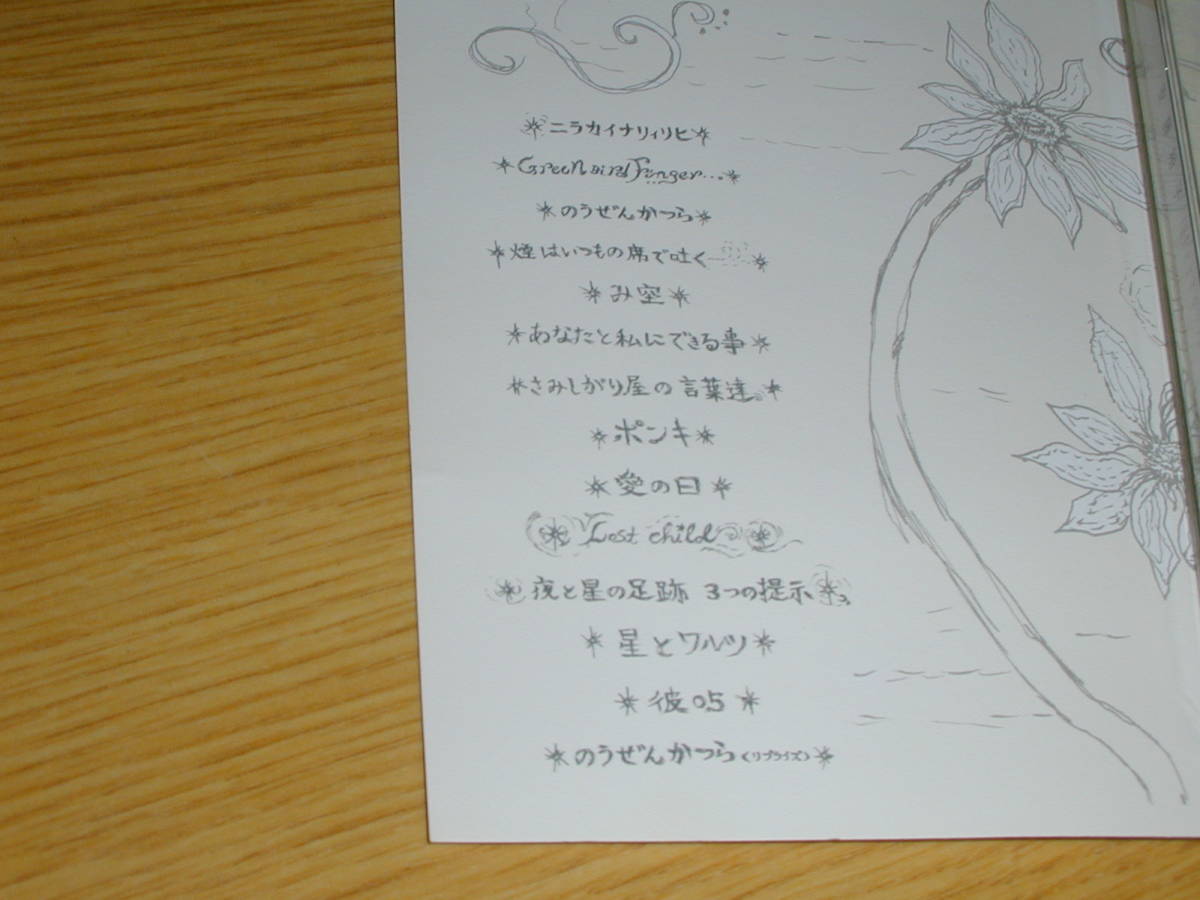 ニラカイナリィリヒ
Green bird Finger...
のうぜんかつら
煙はいつもの席で吐く
み空
あなたと私にできる事
さみしがり屋の言葉達。
ポンキ
愛の日
Lost child
夜と星の足跡 3つの提示
星とワルツ
彼05
のうぜんかつら(リプライズ)